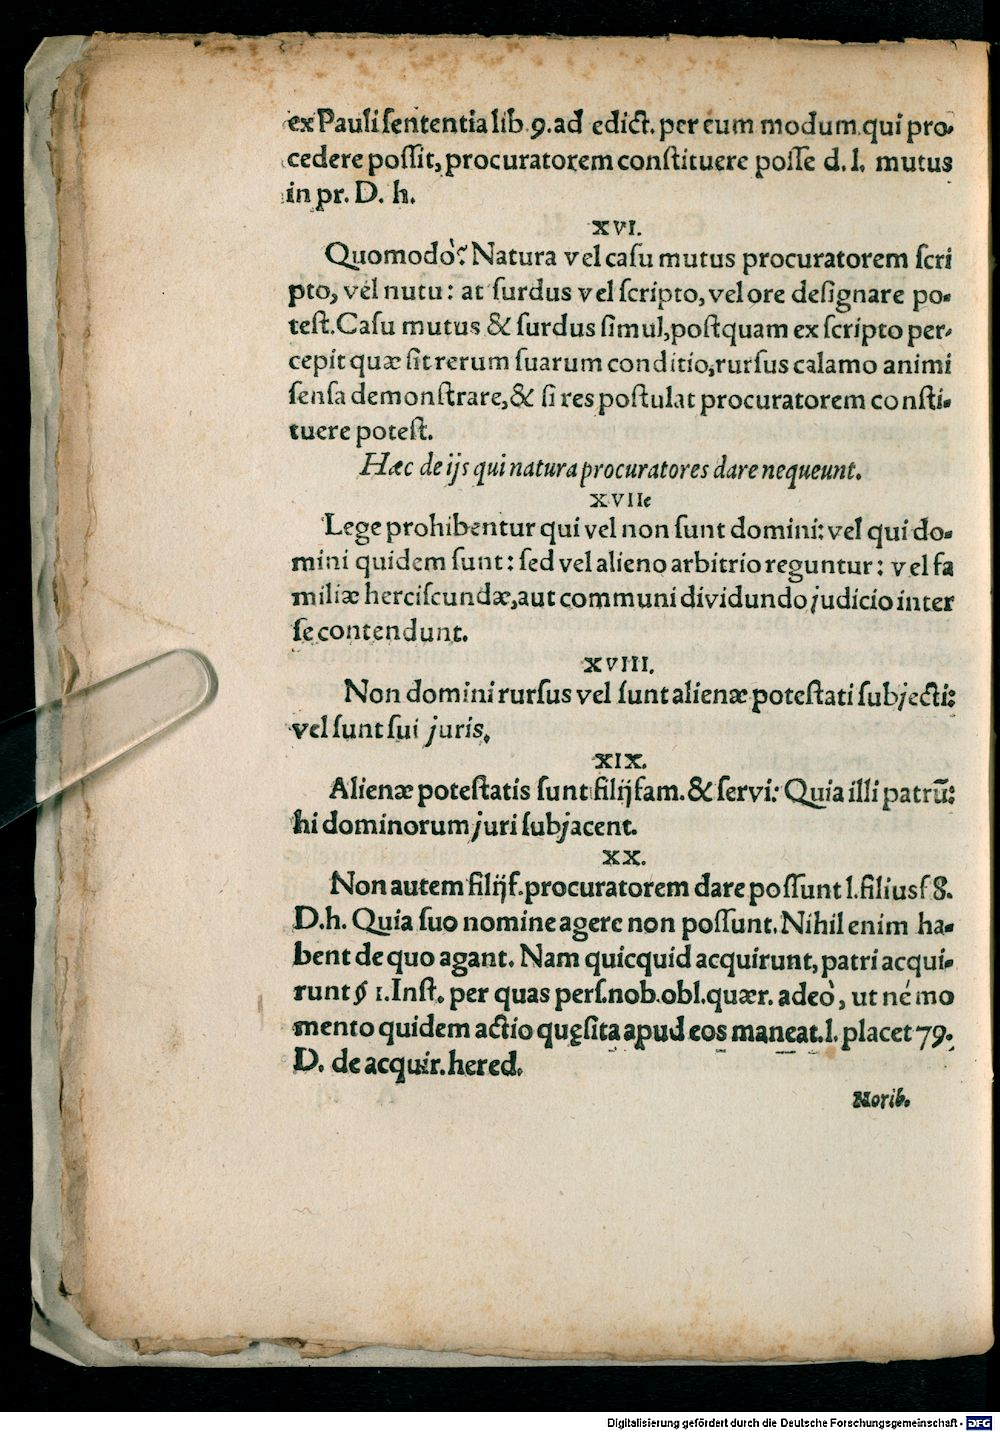 ex Pauli ſententia lib. 9. ad edict. per eum modum qui pro-
cedere poſſit, procuratorem conſtituere poſſe d. l. mutus
in pr. D. h.
XVI.
Quomodò? Natura vel caſu mutus procuratorem ſcri
pto, vel nutu: at ſurdus vel ſcripto, vel ore deſignare po-
teſt. Caſu mutus & ſurdus ſimul, poſtquam ex ſcripto per-
cepit quæ ſit rerum ſuarum conditio, rurſus calamo animi
ſenſa demonſtrare, & ſi res poſtulat procuratorem conſti-
tuere poteſt.
Hæc de ijs qui natura procuratores dare nequeunt.
XVIIe
Lege prohibentur qui vel non ſunt domini: vel qui do-
mini quidem ſunt: ſed vel alieno arbitrio reguntur: vel fa
miliæ herciſcundæ, aut communi dividundo judicio inter
ſe contendunt.
XVIII.
Non domini rurſus vel ſunt alienæ poteſtati ſubjecti:
vel ſunt ſui juris.
XIX.
Alienæ poteſtatis ſunt filijfam. & ſervi: Quia illi patrū:
hi dominorum juri ſubjacent.
XX.
Non autem filijf. procuratorem dare poſſunt l. filiusf 8.
D. h. Quia ſuo nomine agere non poſſunt. Nihil enim ha-
bent de quo agant. Nam quicquid acquirunt, patri acqui-
runt § 1. Inſt. per quas perſ. nob. obl. quær. adeò, ut né mo
mento quidem actio quęſita apud eos maneat. l. placet 79.
D. de acquir. hered.
Morib.
Digitalisierung gefördert durch die Deutsche Forschungsgemeinschaft - DFG